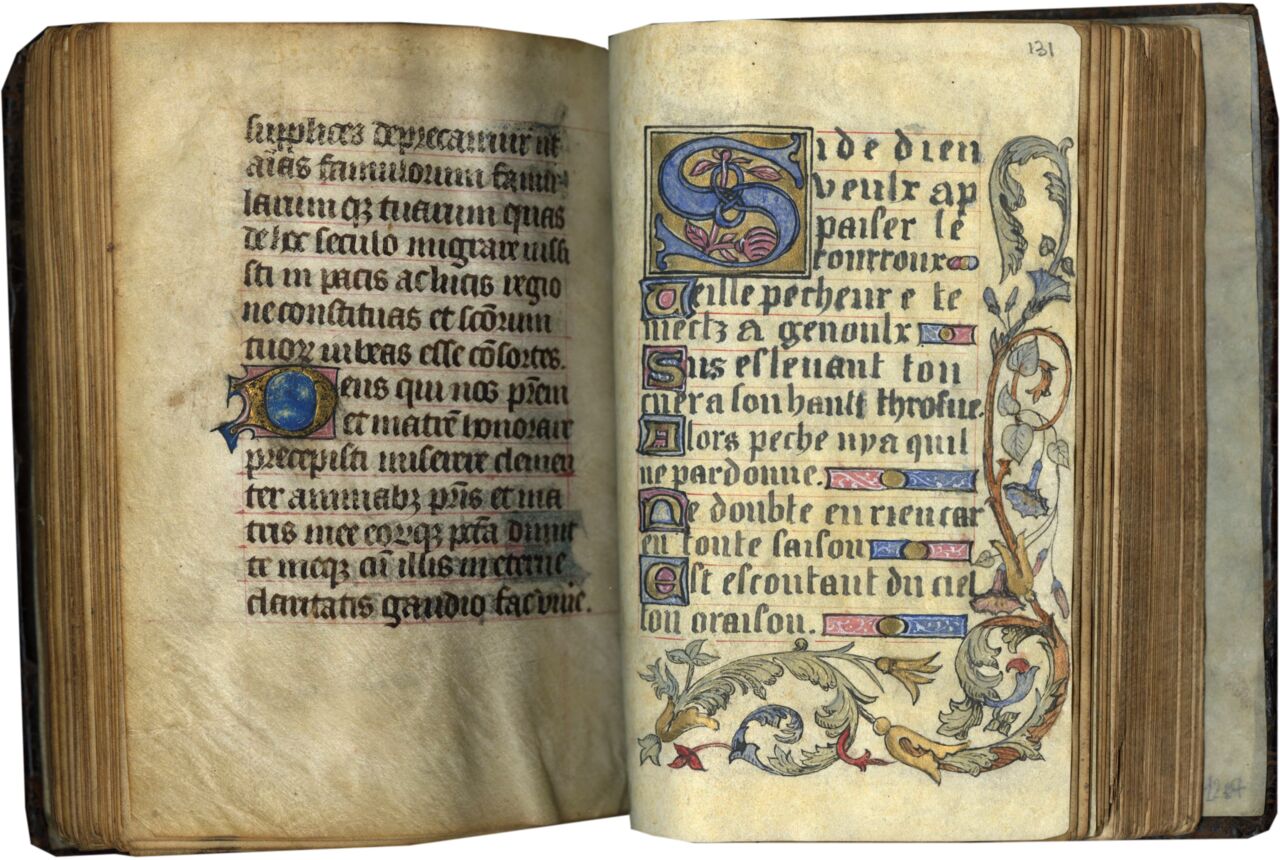 supplices deprecamur ut
aīas famulorum famu
larum qȝ tuarum quas
de hoc seculo migrare iussi
sti in pacis ac lucis regio
ne constituas et scōrum
tuoꝝ iubeas esse cōsortes.
Deus qui nos prēm
et matrē honorare
precepisti miserere clemen
ter animabȝ pr̄is et ma
tris mee eorūqȝ pctā dimit
te meqȝ cū illis in eterne
claritatis gaudio fac viuē.
131
Si de dieu
veulx ap
paiser le
courroux
Veille pecheur e te
mectz a genoulx
Sus esleuant ton
cuer a son hault throsne.
Alors peche nya quil
ne pardonne.
Ne doubte en rien car
en toute saison
Est escoutant du ciel
ton oraison.